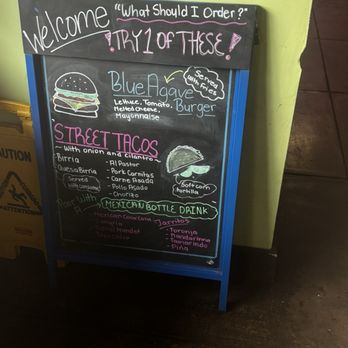 Welcome
"What Should I Order?"
TRY 1 OF THESE!
Blue Agave
Burger
Served
with
Fries
Lettuce, Tomato,
Melted Cheese,
Mayonnaise
STREET TACOS
~ With onion and cilantro ~
- Birria
- QuesaBirria
Served
with consome
- Al Pastor
- Pork Carnitas
- Carne Asada
- Pollo Asado
- Chorizo
Soft corn
tortilla
Pair With
A
MEXICAN BOTTLE DRINK
- Mexican Coca Cola
- Sangria
Jarritos
- Toronja
- Mandarina
- Tamarindo
- Piña
CAUTION